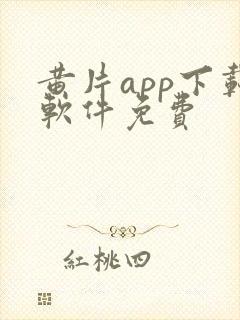 黄片app下載
軟件免費
紅桃四